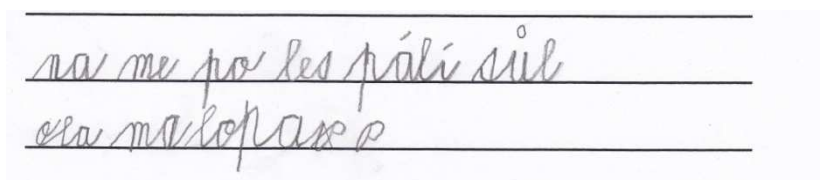 na me po les pálí sůl
osa malopase